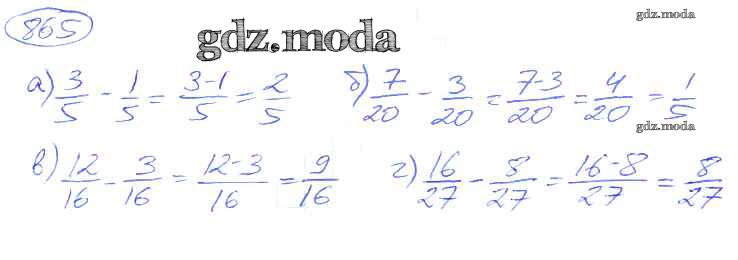 865
gdz.moda
gdz.moda
а) 3/5 - 1/5 = 3-1/5 = 2/5 б) 7/20 - 3/20 = 7-3/20 = 4/20 = 1/5
gdz.moda
в) 12/16 - 3/16 = 12-3/16 = 9/16 г) 16/27 - 8/27 = 16-8/27 = 8/27